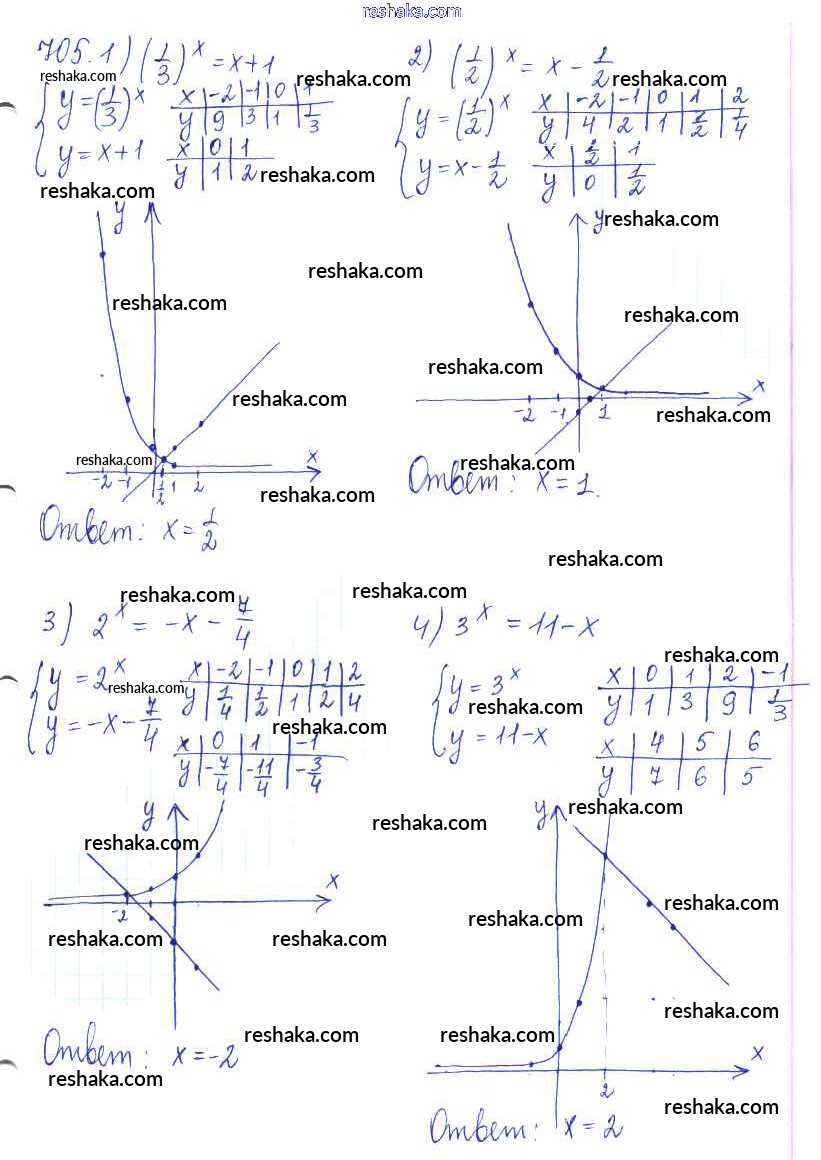 reshaka.com
705. 1) (1/3)^x = x+1
reshaka.com reshaka.com
{ y = (1/3)^x
x | -2 | -1 | 0 | 1
y | 9 | 3 | 1 | 1/3
y = x+1
x | 0 | 1
y | 1 | 2
reshaka.com
reshaka.com
y
reshaka.com
reshaka.com
reshaka.com
reshaka.com
x
-2 -1 1/2 1 2
reshaka.com
Ответ: x = 1/2
2) (1/2)^x = x - 1/2
reshaka.com
{ y = (1/2)^x
x | -2 | -1 | 0 | 1 | 2
y | 4 | 2 | 1 | 1/2 | 1/4
y = x - 1/2
x | 1/2 | 1
y | 0 | 1/2
reshaka.com
y
reshaka.com
reshaka.com
reshaka.com
x
-2 -1 1
reshaka.com
reshaka.com
Ответ: x = 1.
reshaka.com
reshaka.com
reshaka.com
3) 2^x = -x - 7/4
{ y = 2^x
reshaka.com
x | -2 | -1 | 0 | 1 | 2
y | 1/4 | 1/2 | 1 | 2 | 4
y = -x - 7/4
reshaka.com
x | 0 | 1 | -1
y | -7/4 | -11/4 | -3/4
y
reshaka.com
reshaka.com
x
-2
reshaka.com reshaka.com
reshaka.com
Ответ: x = -2
reshaka.com
4) 3^x = 11-x
reshaka.com
{ y = 3^x
x | 0 | 1 | 2 | -1
y | 1 | 3 | 9 | 1/3
reshaka.com
y = 11-x
x | 4 | 5 | 6
y | 7 | 6 | 5
y
reshaka.com
reshaka.com
reshaka.com
reshaka.com
reshaka.com
x
2
reshaka.com
Ответ: x = 2